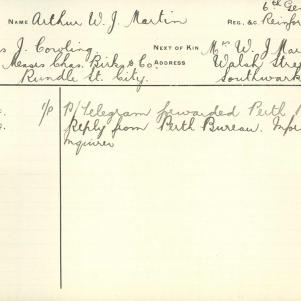 6th Gen
NAME Arthur W. J. Martin REG., &C. Reinfor
s J. Cowling NEXT OF KIN Mr W. J. Mar
Messrs Chas. Birks & Co. ADDRESS Walsh Stree
Rundle St. City. Southwark
1/P P/Telegram forwarded Perth
Reply from Perth Bureau. Info
Inquirer